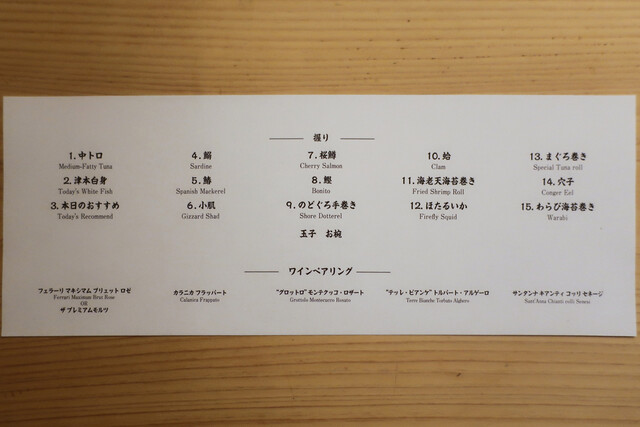 握り
1. 中トロ
Medium-Fatty Tuna
2. 津本白身
Today's White Fish
3. 本日のおすすめ
Today's Recommend
4. 鰯
Sardine
5. 鰆
Spanish Mackerel
6. 小肌
Gizzard Shad
7. 桜鱒
Cherry Salmon
8. 鰹
Bonito
9. のどぐろ手巻き
Shore Dotterel
10. 蛤
Clam
11. 海老天海苔巻き
Fried Shrimp Roll
12. ほたるいか
Firefly Squid
13. まぐろ巻き
Special Tuna roll
14. 穴子
Conger Eel
15. わらび海苔巻き
Warabi
玉子 お椀
ワインペアリング
フェラーリ マキシマム ブリュット ロゼ
Ferrari Maximum Brut Rose
OR
ザ プレミアムモルツ
カラニカ フラッパート
Calanica Frappato
"グロットロ" モンテクッコ・ロザート
Grottolo Montecucco Rosato
"テッレ・ビアンケ" トルバート・アルゲーロ
Terre Bianche Torbato Alghero
サンタンナ キアンティ コッリ セネージ
Sant'Anna Chianti colli Senesi